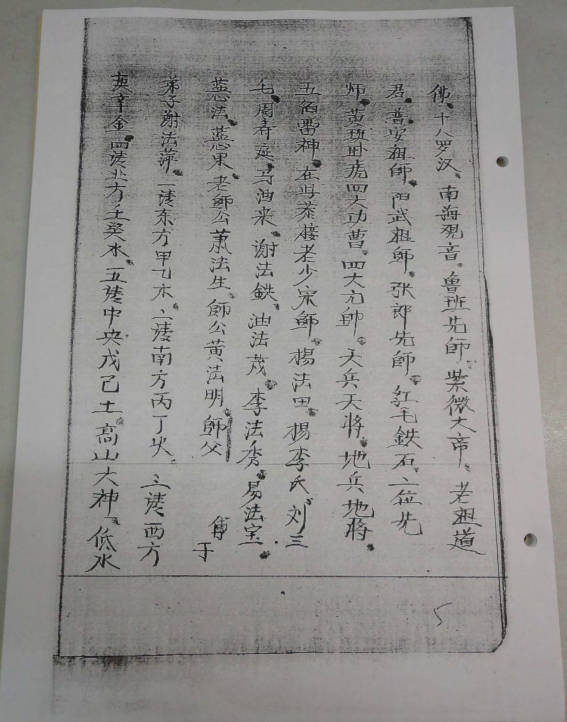 佛、十八罗汉、南海观音、鲁班先師、紫微大帝、老祖道
君、普安祖師、阳武祖師、张郎先師、紅毛鉄石二位先
師、黄斑卧虎四大功曹、四大元帅、天兵天将、地兵地将、
五伯雷神、在母茶楼老少宗師、楊法田、楊李氏、刘三
七、周春延、马油来、謝法鉄、油法茂、李法秀、易法宝、
蓝法、蓝果、老師公萧法生、師公黄法明、師父
傳于
弟子謝法萍、一漆东方甲乙木、二漆南方丙丁火、三漆西方
庚辛金、四漆北方壬癸水、五漆中央戊己土、高山大神、低水
5